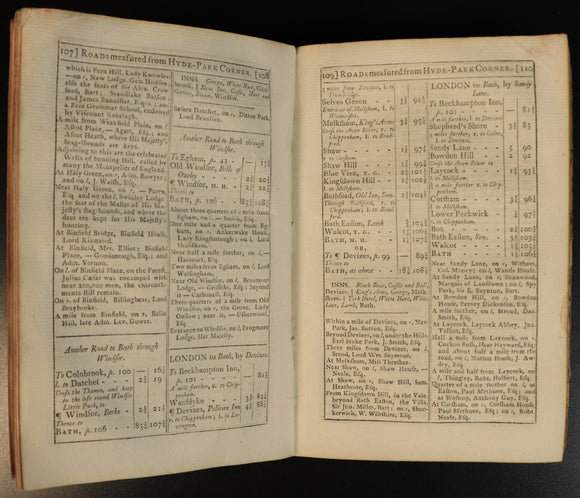 107] ROADS measured from HYDE-PARK CORNER. [108
which is Fern Hill, Lady Knowles;
—on r, New Lodge, Gen. Hodson;
also the seats of Sir Alex. Craw-
ford, Bart; Standlake Batson
and James Bannister, Esqrs; and
a Free Grammar School, endowed
by Viscount Ranelagh.
A mile from Winkfield Plain, on l,
Ascot Place, — Agart, Esq; and
Ascot Place, His Majesty's
Stag-Hounds are kept.
Adjoining to this are the celebrated
Wells of Sunning Hill, called by
many the Montpelier of England.
At Holy Green, on r, Alex. Bowyer;
and on l, J. Walsh, Esq.
Near Haly Green, on r, — Parry,
Esq; and on l, Swinley Lodge
the seat of the Master of His Ma-
jesty's stag-hounds, and where the
deer are kept for His Majesty's
hunting.
At Binfield Bridge, Binfield House,
Lord Kinnaird.
At Binfield, Mrs. Elliot; Binfield-
Place, — Goodenough, Esq; and
Adm. Vernon.
On l. of Binfield Place, on the Forest,
Julius Cæsar was encamped with
near 200,000 men, the entrench-
ments still remain.
On r. of Binfield, Billingbear, Lord
Braybroke.
A mile from Binfield, on r, Belle
Hill, late Adm. Lev. Gower.
Another Road to Bath through
Windsor.
To Colnbrook, fl. 100 — 16¾
l. to Datchet - - 2¼ 19
Cross the Thames, and keep
to the left round Windsor
Little Park, to
¶ Windsor, Berks - 2¼ 21¼
Thence to
BATH, fl. 106 - - 85¾ 107¼
INNS. George, White Hart, Coln-
brook. | New Inn, Castle, Hart and
Garter, Swan, Windsor.
Before Datchet, on r. Ditton Park,
Lord Beaulieu.
Another Road to Bath through
Windsor.
To Egham, fl. 43 - — 17¾
Old Windsor, Bells of
Ousley - - - 2½ 20¼
¶ Windsor, M. H. - 2¼ 22½
Thence to
BATH, fl. 106 - - 85¾ 108¼
About three quarters of a mile from
Egham, on r,
One mile and a quarter from Eg-
ham, on r, Ankerwyke House,
Lady Kingborough; on l, Lord
Shuldham.
Near half a mile further, on l, —
Harcourt, Esq.
Two miles from Egham, on l, Lord
Walsingham.
Near Old Windsor, on l, Beaumont
Lodge, — Griffiths, Esq; beyond
it — Cardonall, Esq.
Three quarters of a mile from Old
Windsor, on r, the Grove, Lady
Onslow; near it, — Isherwood,
Esq.
Entrance to Windsor, on l, Frogmore
Lodge, Her Majesty.
LONDON to Bath, by Devizes.
To Beckhampton Inn,
fl. 101 - - - — 81½
A mile further, l. to Chip-
penham;
Wansdyke - - - 3¼ 84¾
¶ Devizes, Pelican Inn 4¼ 88½
r. to Chippenham; l. to La-
vington;
109] ROADS measured from HYDE-PARK CORNER. [110
2 miles from Devizes, l. to
Trowbridge.
Selves Green - - 3½ 92½
Enter at Melksham, l. to
Warminster.
Melksham, King's Arms 3½ 95¾
Cross the Avon River, r. to
Chippenham, l. to Brad-
ford.
Shaw - - - 1¾ 97½
r. to Corsham.
Shaw Hill - - - 1¾ 99¼
Blue Vien, T. G. - 2¼ 101½
Kingsdown Hill - - ½ 102
l. to Melksham.
Bathford, Old Inn, Som. 1¾ 103¾
Through Bathford, r. to
Chippenham, l. to Brad-
ford.
Bath Easton, Lamb ½ 104¼
Walcot, T. G. - - 1¾ 106¼
BATH, M. H. - - 1 107¼
OR,
To ¶ Devizes, fl. 99 — 89¾
Thence to
BATH, as above - - 18½ 108¼
INNS. Black Bear, Castle and Ball,
Devizes. | King's Arms, George, Melk-
sham. | York Hotel, White Hart, White
Lion, Lamb, Bath.
Within a mile of Devizes, on r, New
Park, Jas. Sutton, Esq.
Beyond Devizes, on l, under the Hills,
Earl Stoke Park, J. Smith, Esq.
Three miles from Devizes, on l,
Seend, Lord Wm. Seymour.
At Melksham, Miss Thresher.
Near Shaw, on l, Shaw House, —
Neale, Esq.
At Shaw, on r, Shaw Hill, Sam.
Heathcote, Esq.
From Kingsdown Hill, in the Vale
beyond Bath Easton, the Villa,
Sir Jno. Miller, Bart; on r, Shoc-
kerwick, W. Wiltshire, Esq.
LONDON to Bath, by Sandy
Lane.
To Beckhampton Inn,
fl. 101 - - - — 81½
A mile further, l. to Devizes;
Shepherd's Shore - 3½ 85
¼ mile further, r. to Calne,
l. to Devizes.
Sandy Lane - - 5 90
Bowdon Hill - - 2 92
Cross the Avon River to
Laycock - - - 1¾ 93¾
l. to Melksham.
¼ a mile further r. to Chip-
penham,
Corsham - - - 3¼ 96¾
l. to Melksham.
Lower Peckwick - ¾ 97½
r. to Chippenham;
Box - - - - 2½ 100
Bath Easton, Som. 3½ 103½
Walcot - - - 1¾ 105¼
BATH - - - 1¼ 106½
Near Sandy Lane, on r, Witham,
Col. Money; on l, Wands House.
At Sandy Lane, on r, Bearwood,
Marquis of Lansdown; on l, Spy
Park, Sir E. Baynton, Bart.
At Bowdon Hill, on r, Bowdon
House, Ferney Dickenson, Esq.
A mile further, on l, Stroud, Dan.
Smith, Esq.
At Laycock, Laycock Abbey, Jno.
Talbot, Esq.
Half a mile from Laycock, on r,
Corsham House, Paul Methuen, Esq.
At Corsham, on r, Corsham House,
Paul Methuen, Esq; on r, Robt.
Neale, Esq.